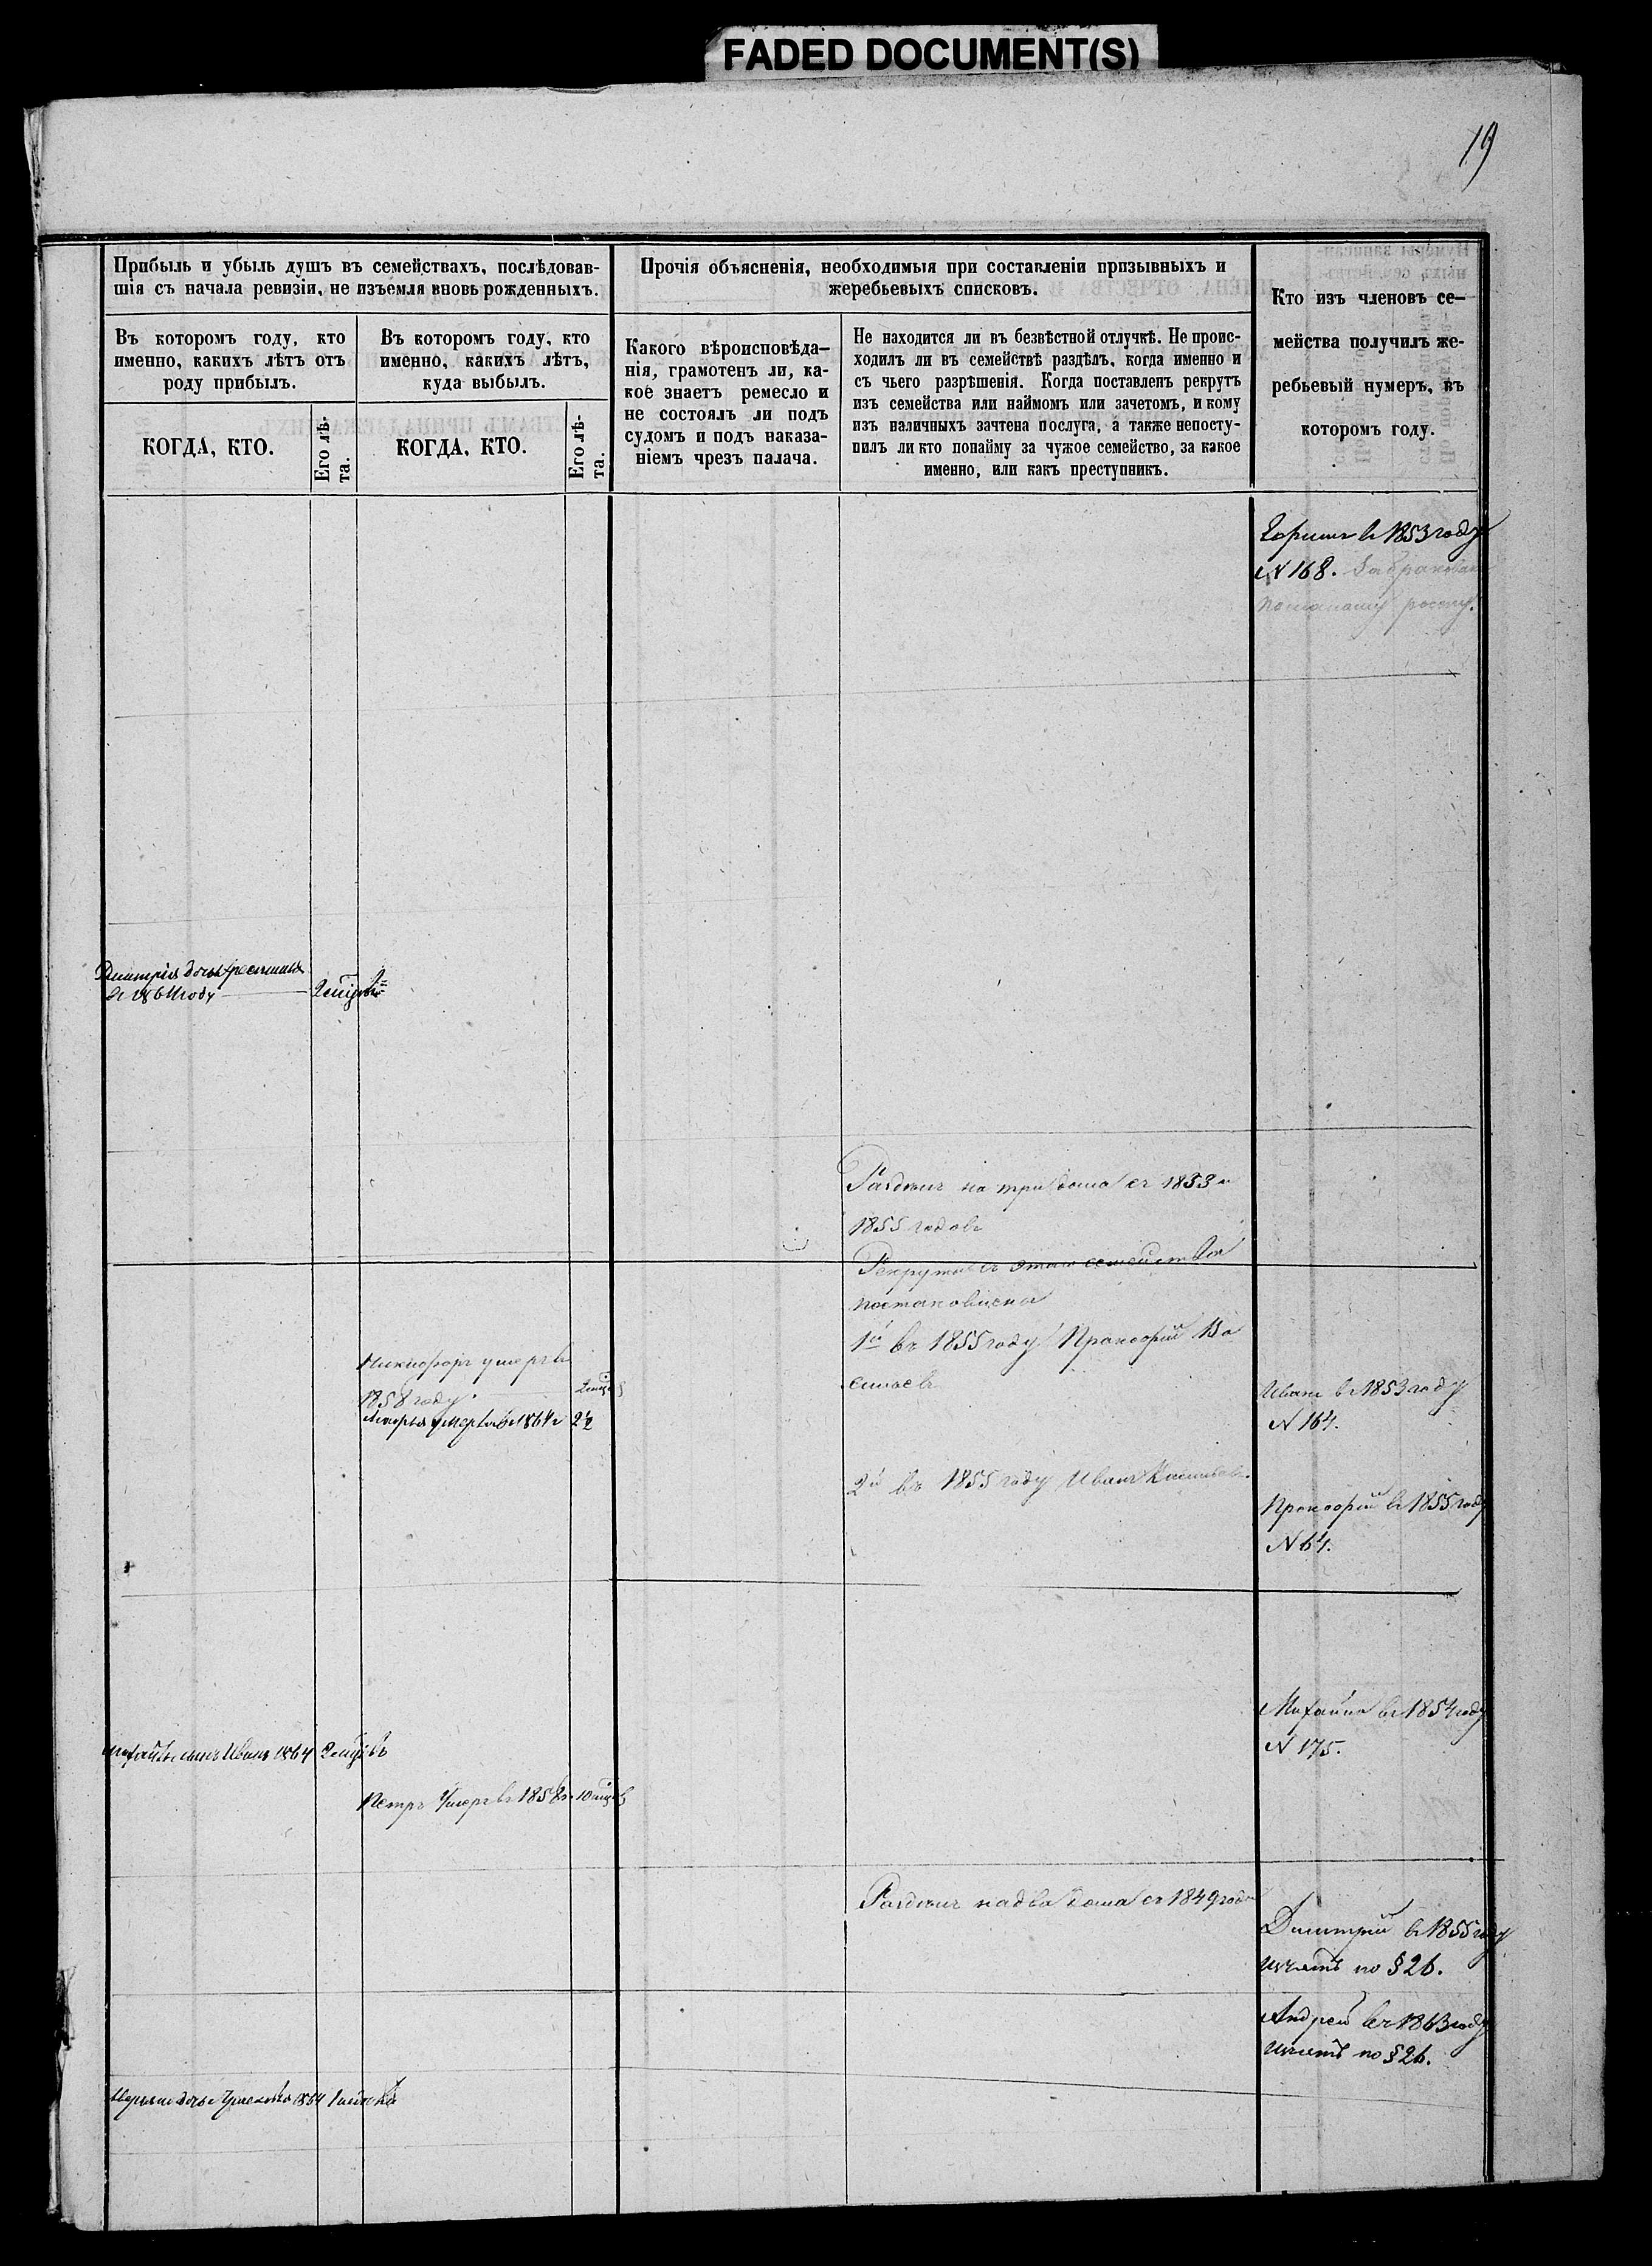 FADED DOCUMENT(S)
19
Прибыль и убыль душъ въ семействахъ, послѣдовав-
шія съ начала ревизіи, не изъемля вновь рожденныхъ.
Прочія объясненія, необходимыя при составленіи призывныхъ и
жеребьевыхъ списковъ.
Кто изъ членовъ се-
мейства получилъ же-
ребьевый нумеръ, въ
которомъ году.
Въ которомъ году, кто
именно, какихъ лѣтъ отъ
роду прибылъ.
Въ которомъ году, кто
именно, какихъ лѣтъ,
куда выбылъ.
Какого вѣроисповѣда-
нія, грамотенъ ли, ка-
кое знаетъ ремесло и
не состоялъ ли подъ
судомъ и подъ наказа-
ніемъ чрезъ палача.
Не находится ли въ безвѣстной отлучкѣ. Не проис-
ходилъ ли въ семействѣ раздѣлъ, когда именно и
съ чьего разрѣшенія. Когда поставленъ рекрутъ
изъ семейства или наймомъ или зачетомъ, и кому
изъ наличныхъ зачтена послуга, а также непосту-
пилъ ли кто понайму за чужое семейство, за какое
именно, или какъ преступникъ.
КОГДА, КТО.
Его лѣ-
та.
КОГДА, КТО.
Его лѣ-
та.
въ 1853 году
N 168. Забракованъ
росту.
Дмитрія дочь
въ 1861 году
Раздѣлъ на три дома съ 1853 и
1855 годовъ
Рекрутъ съ этаго семейства
1й въ 1855 году Прокофій Ва
сильевъ
Никифоръ умеръ въ
1858 году
умерла въ 1864 г 2½
Иванъ въ 1853 году
N 164.
2й въ 1855 году Иванъ
Прокофій въ 1855 году
N 64.
Михайла въ 1854 году
N 175.
сынъ Иванъ 1864
Петръ Умеръ въ 1858 г 10
Раздѣлъ на два дома съ 1849 года
Дмитрій въ 1855 году
изъятъ по § 26.
Андрей въ 1863 году
изъятъ по § 26.
дочь 1864